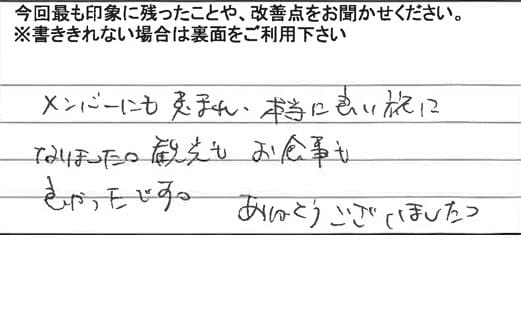 今回最も印象に残ったことや、改善点をお聞かせください。
※書ききれない場合は裏面をご利用下さい
メンバーにも恵まれ、本当に良い旅に
なりました。観光も お食事も
良かったです。 ありがとうございました。